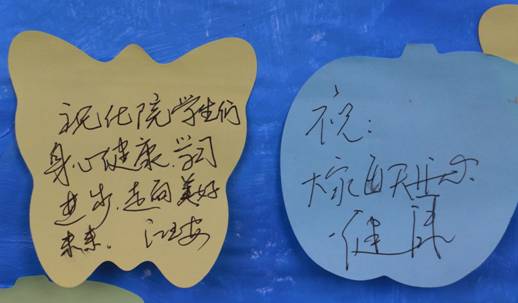 祝化院学生们
身心健康.学习
进步.走向美好
未来. 江玉安
祝:
大家白天快乐.
健康